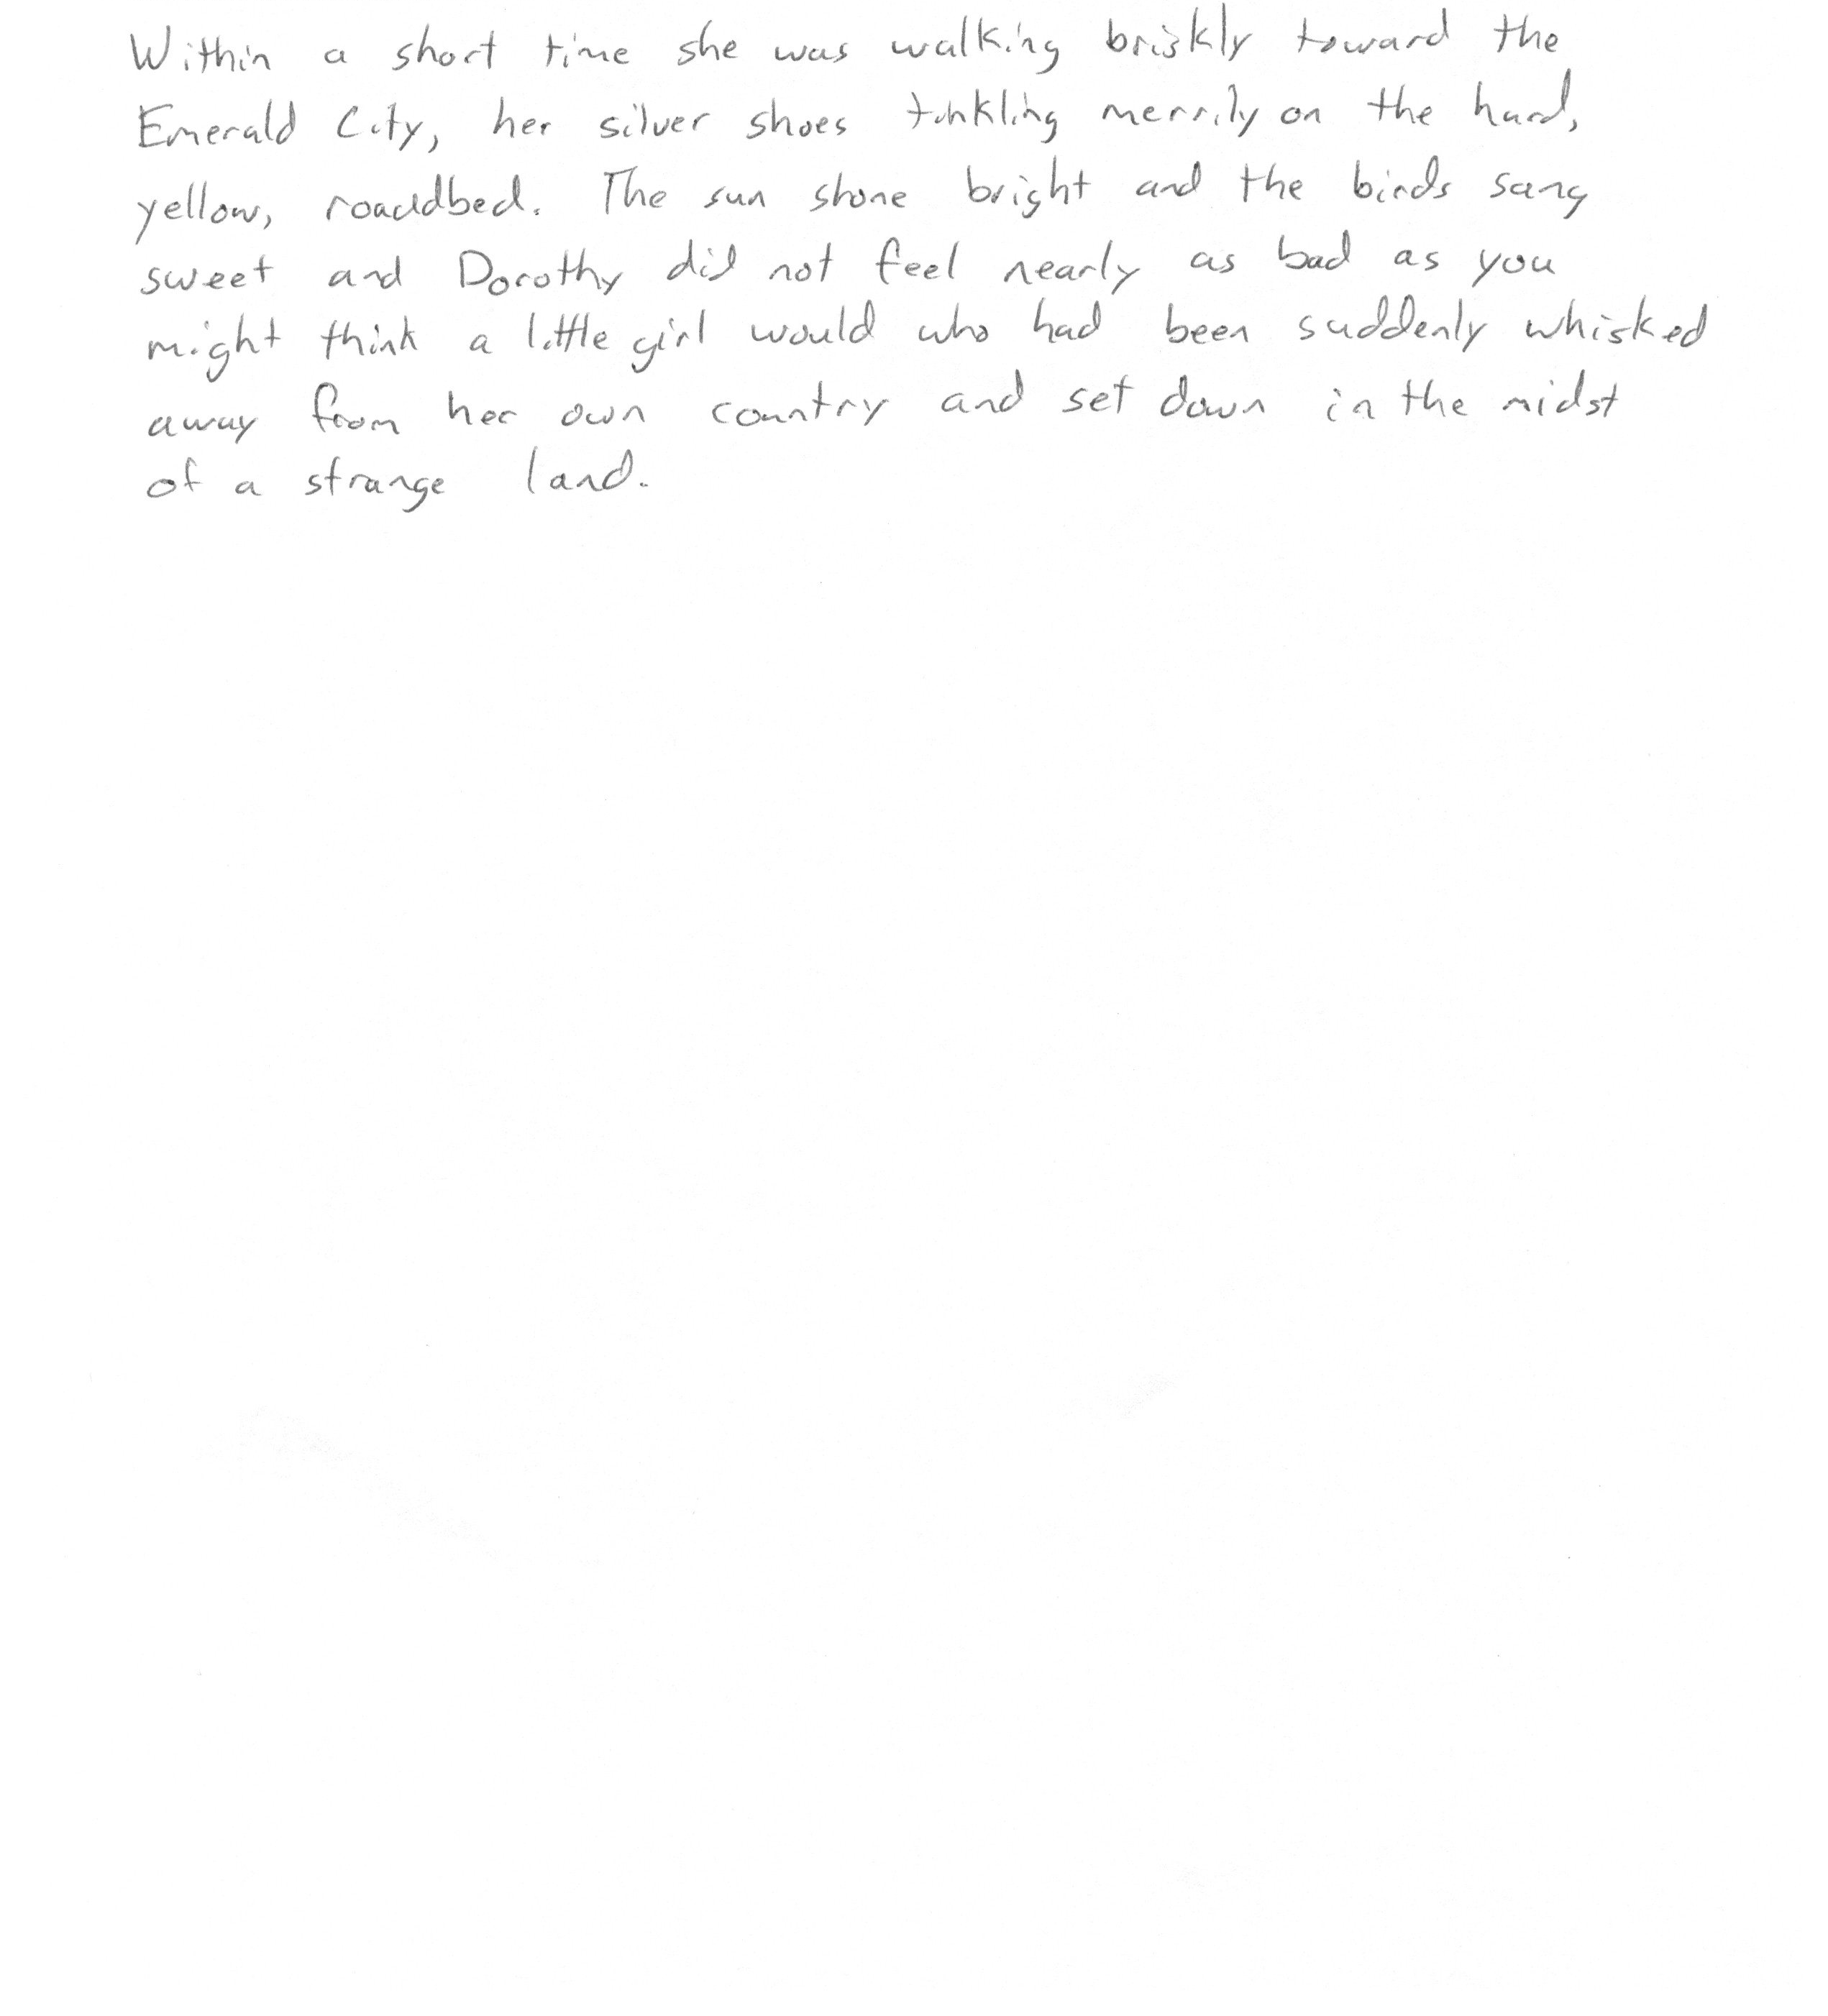 Within a short time she was walking briskly toward the
Emerald City, her silver shoes tinkling merrily on the hard,
yellow, roaddbed. The sun shone bright and the birds sang
sweet and Dorothy did not feel nearly as bad as you
might think a little girl would who had been suddenly whisked
away from her own country and set down in the midst
of a strange land.